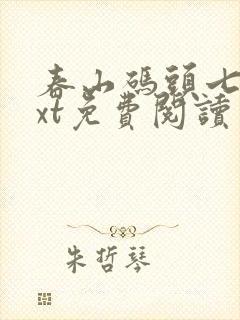 春山碼頭七
xt免費閱讀
朱哲琴